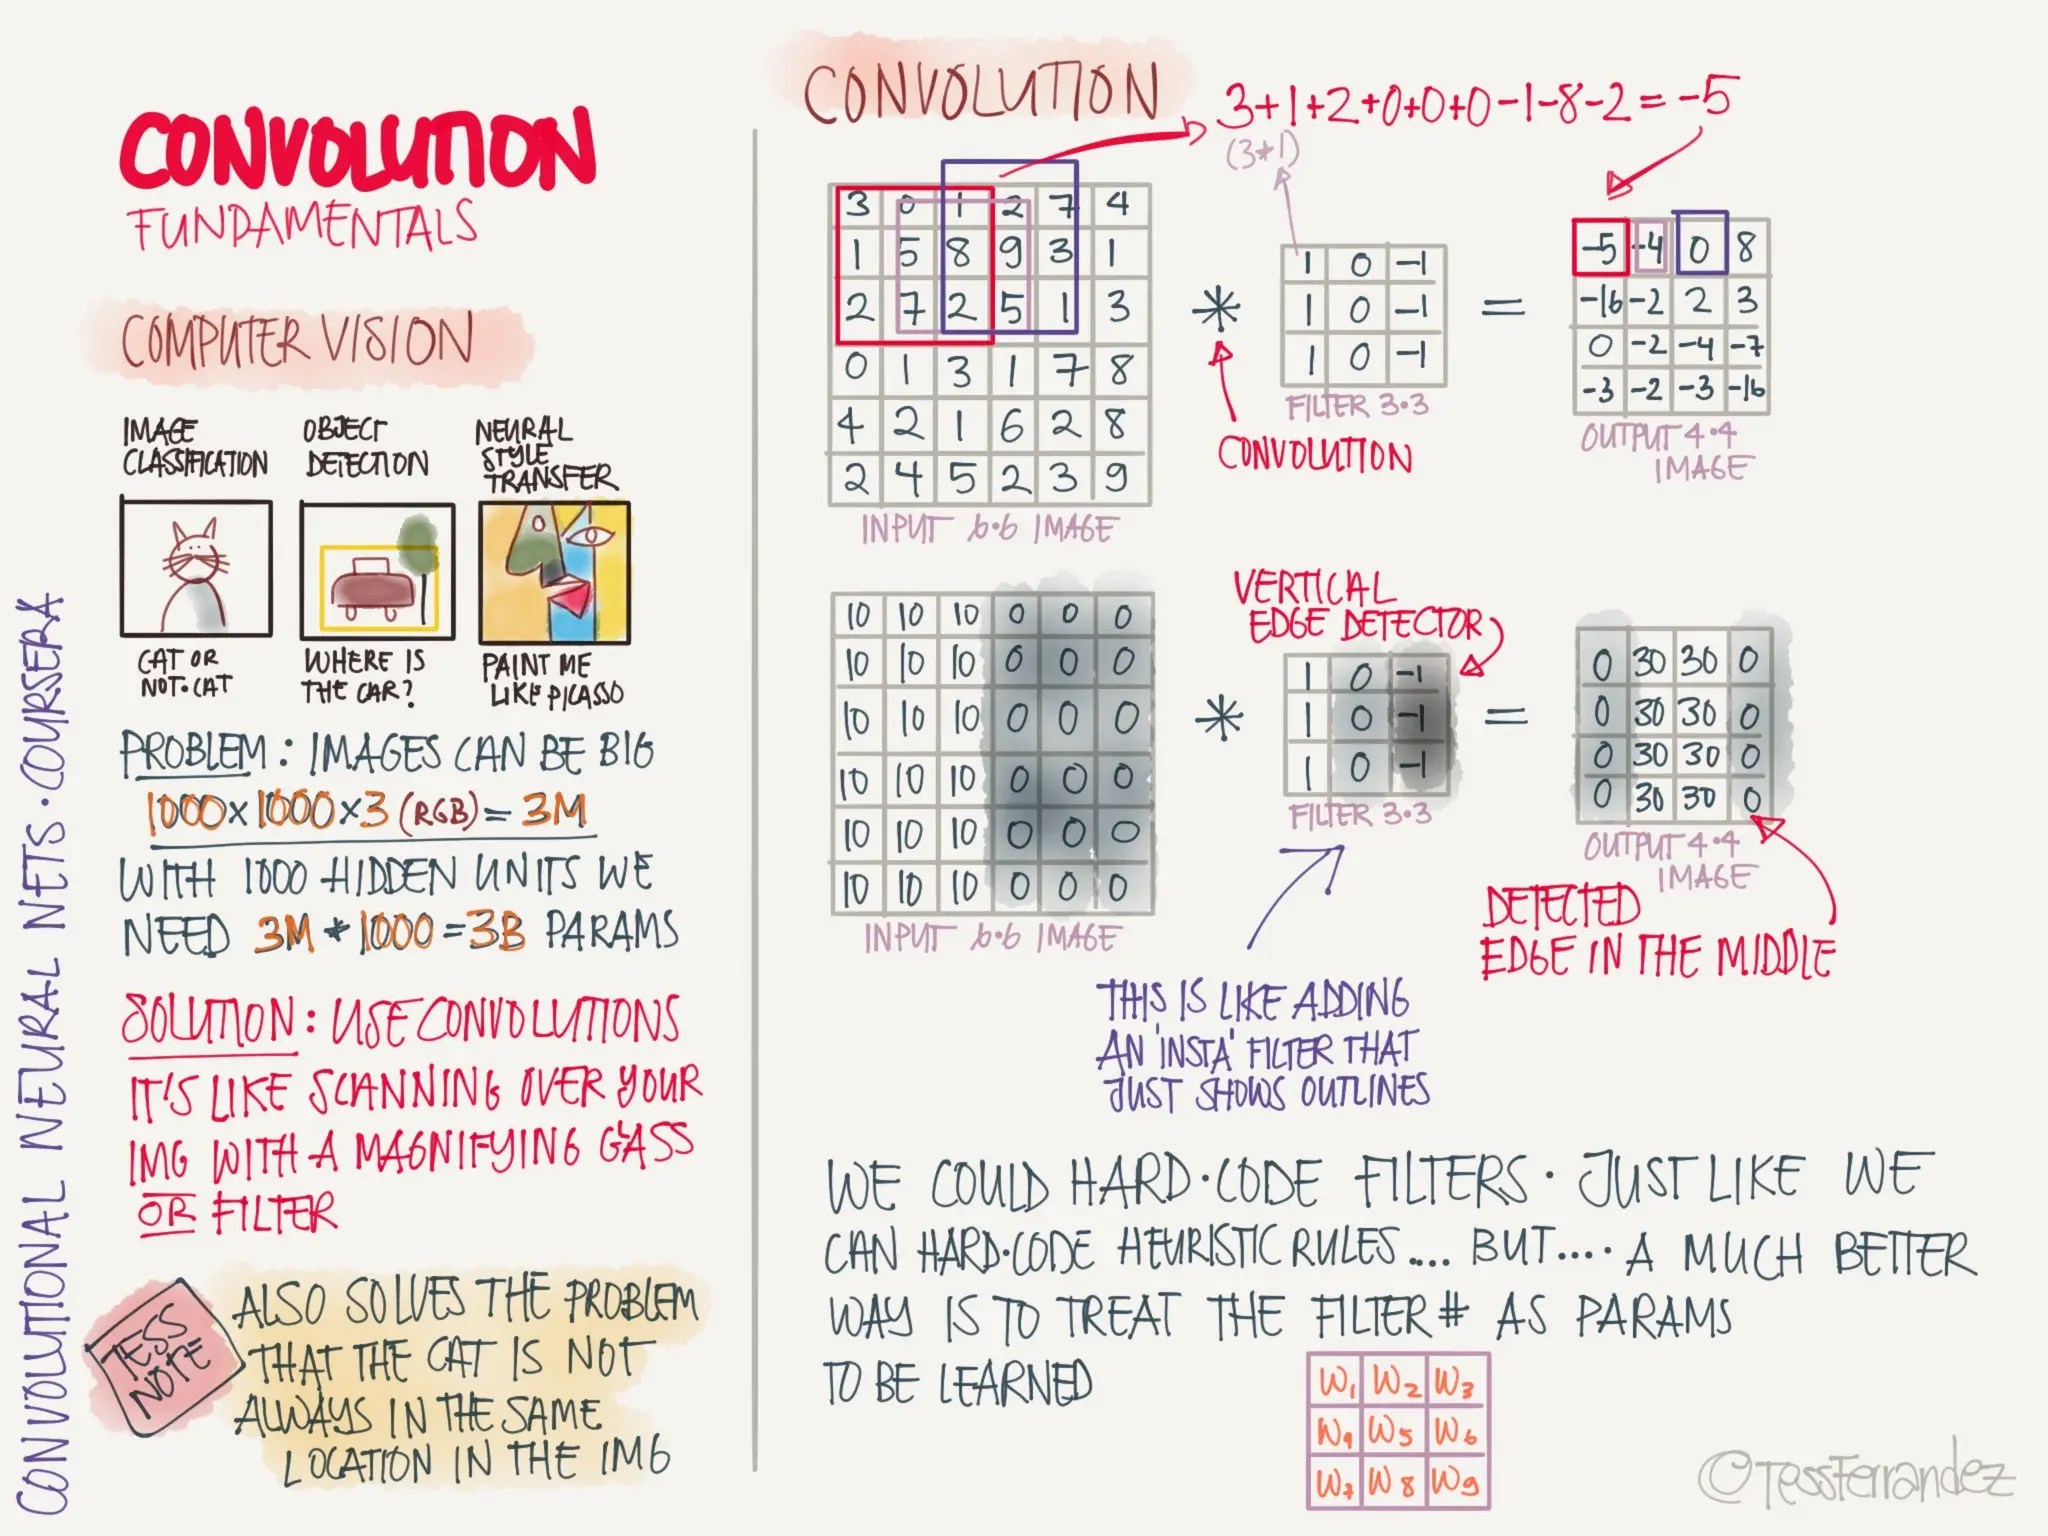 CONVOLUTIONAL NEURAL NETS · COURSERA
CONVOLUTION
FUNDAMENTALS
COMPUTER VISION
IMAGE
CLASSIFICATION
CAT OR
NOT·CAT
OBJECT
DETECTION
WHERE IS
THE CAR?
NEURAL
STYLE
TRANSFER
PAINT ME
LIKE PICASSO
PROBLEM: IMAGES CAN BE BIG
1000×1000×3 (RGB) = 3M
WITH 1000 HIDDEN UNITS WE
NEED 3M * 1000 = 3B PARAMS
SOLUTION: USE CONVOLUTIONS
IT'S LIKE SCANNING OVER YOUR
IMG WITH A MAGNIFYING GLASS
OR FILTER
TESS
NOTE
ALSO SOLVES THE PROBLEM
THAT THE CAT IS NOT
ALWAYS IN THE SAME
LOCATION IN THE IMG
CONVOLUTION
3+1+2+0+0+0-1-8-2=-5
(3*1)
3 0 1 2 7 4
1 5 8 9 3 1
2 7 2 5 1 3
0 1 3 1 7 8
4 2 1 6 2 8
2 4 5 2 3 9
INPUT 6·6 IMAGE
*
CONVOLUTION
1 0 -1
1 0 -1
1 0 -1
FILTER 3·3
=
-5 -4 0 8
-16 -2 2 3
0 -2 -4 -7
-3 -2 -3 -16
OUTPUT 4·4
IMAGE
10 10 10 0 0 0
10 10 10 0 0 0
10 10 10 0 0 0
10 10 10 0 0 0
10 10 10 0 0 0
10 10 10 0 0 0
INPUT 6·6 IMAGE
*
VERTICAL
EDGE DETECTOR
1 0 -1
1 0 -1
1 0 -1
FILTER 3·3
=
0 30 30 0
0 30 30 0
0 30 30 0
0 30 30 0
OUTPUT 4·4
IMAGE
DETECTED
EDGE IN THE MIDDLE
THIS IS LIKE ADDING
AN 'INSTA' FILTER THAT
JUST SHOWS OUTLINES
WE COULD HARD·CODE FILTERS · JUST LIKE WE
CAN HARD·CODE HEURISTIC RULES.... BUT.... A MUCH BETTER
WAY IS TO TREAT THE FILTER # AS PARAMS
TO BE LEARNED
W1 W2 W3
W4 W5 W6
W7 W8 W9
©TessFerrandez